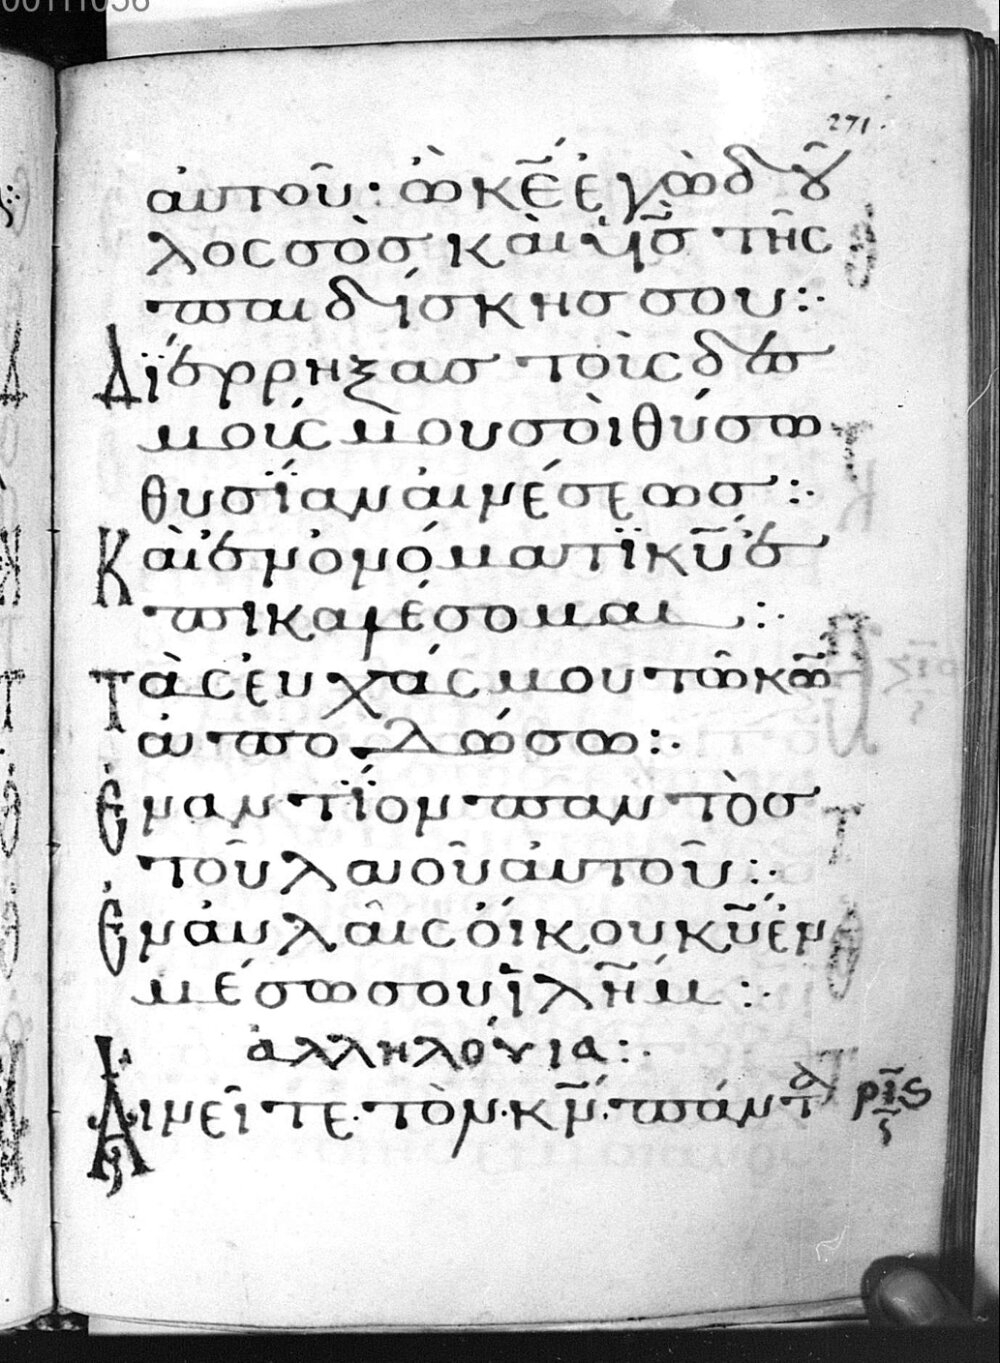 00111058
271.
αὐτοῦ: ὦ κ̅ε̅ ἐγὼ δοῦ
λος σὸς καὶ υἱ̅ὸς τῆς
παιδίσκης σου:·
Διέρρηξας τοὺς δεσ
μούς μου σοὶ θύσω
θυσΐαν αἰνέσεως:·
Καὶ ἐν ὀνόματϊ κ̅υ̅ ἐ
πικαλέσομαι:·
Τὰς εὐχάς μου τῶ κ̅ω̅
ἀποδώσω:·
Ἐναντΐον παντὸς
τοῦ λαοῦ αὐτοῦ:·
Ἐν αὐλαῖς οἴκου κ̅υ̅ ἐν
μέσω σου ϊλ̅η̅μ:·
ἀλληλούϊα:·
Αἰνεῖτε· τὸν· κ̅ν̅· πάντα
ρι̅ς